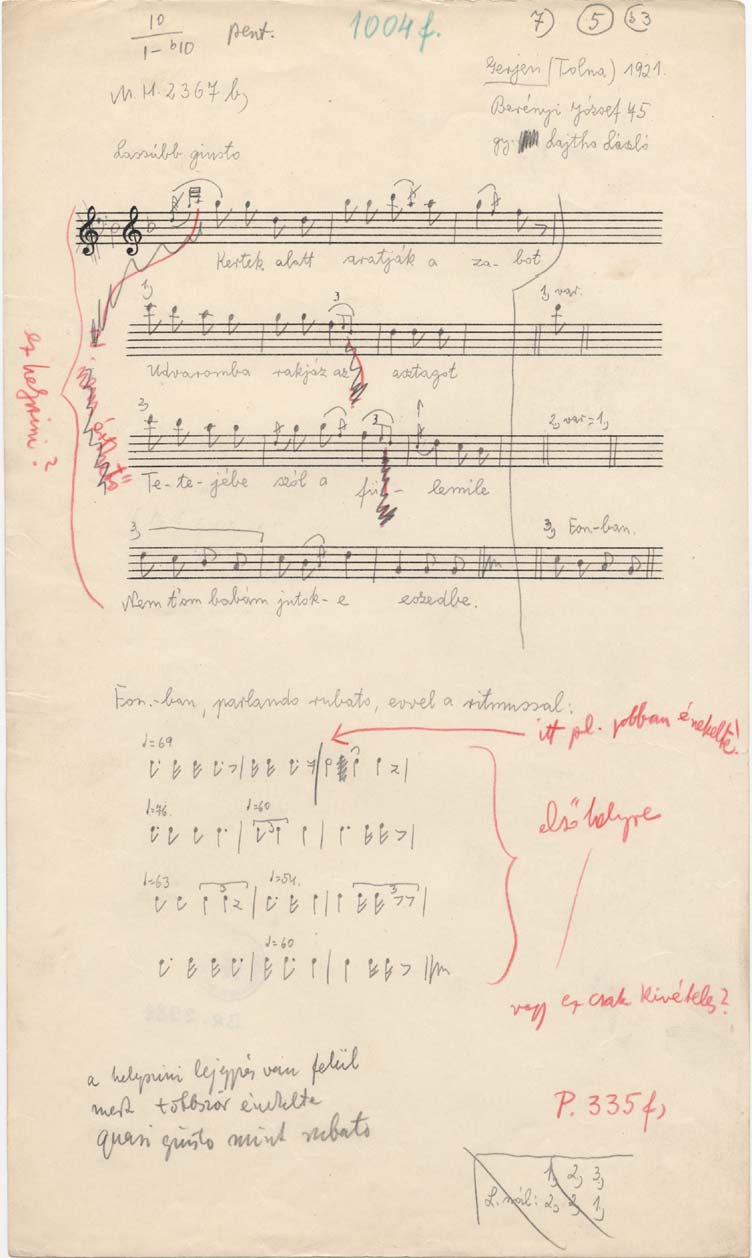 10
1 - b10
pent.
1004 f.
7) 5 b3
M.H. 2367 b,
Gerjen (Tolna) 1921.
Berényi József 45
gy. Lajtha László
Lassúbb giusto
Kertek alatt aratják a za- bot
1,
3
1, var.
Udvaromba rakják az asztagot
2,
3
2, var = 1,
Te- te- jébe szól a fü- lemile
3,
3, Fon-ban.
Nem t'om babám jutok-e eszedbe.
ez helyszini?
Fon.-ban, parlando rubato, evvel a ritmussal:
itt pl. jobban énekelte!
♩=69
♩=76.
♩=60
3
első helyre
♩=63
3
♩=54.
3
♩=60
vagy ez csak kivételes?
a helyszini lejegyzés van felül
mert többször énekelte
quasi giusto mint rubato
P. 335 f,
1, 2, 3,
L.-nál: 2, 3, 1,